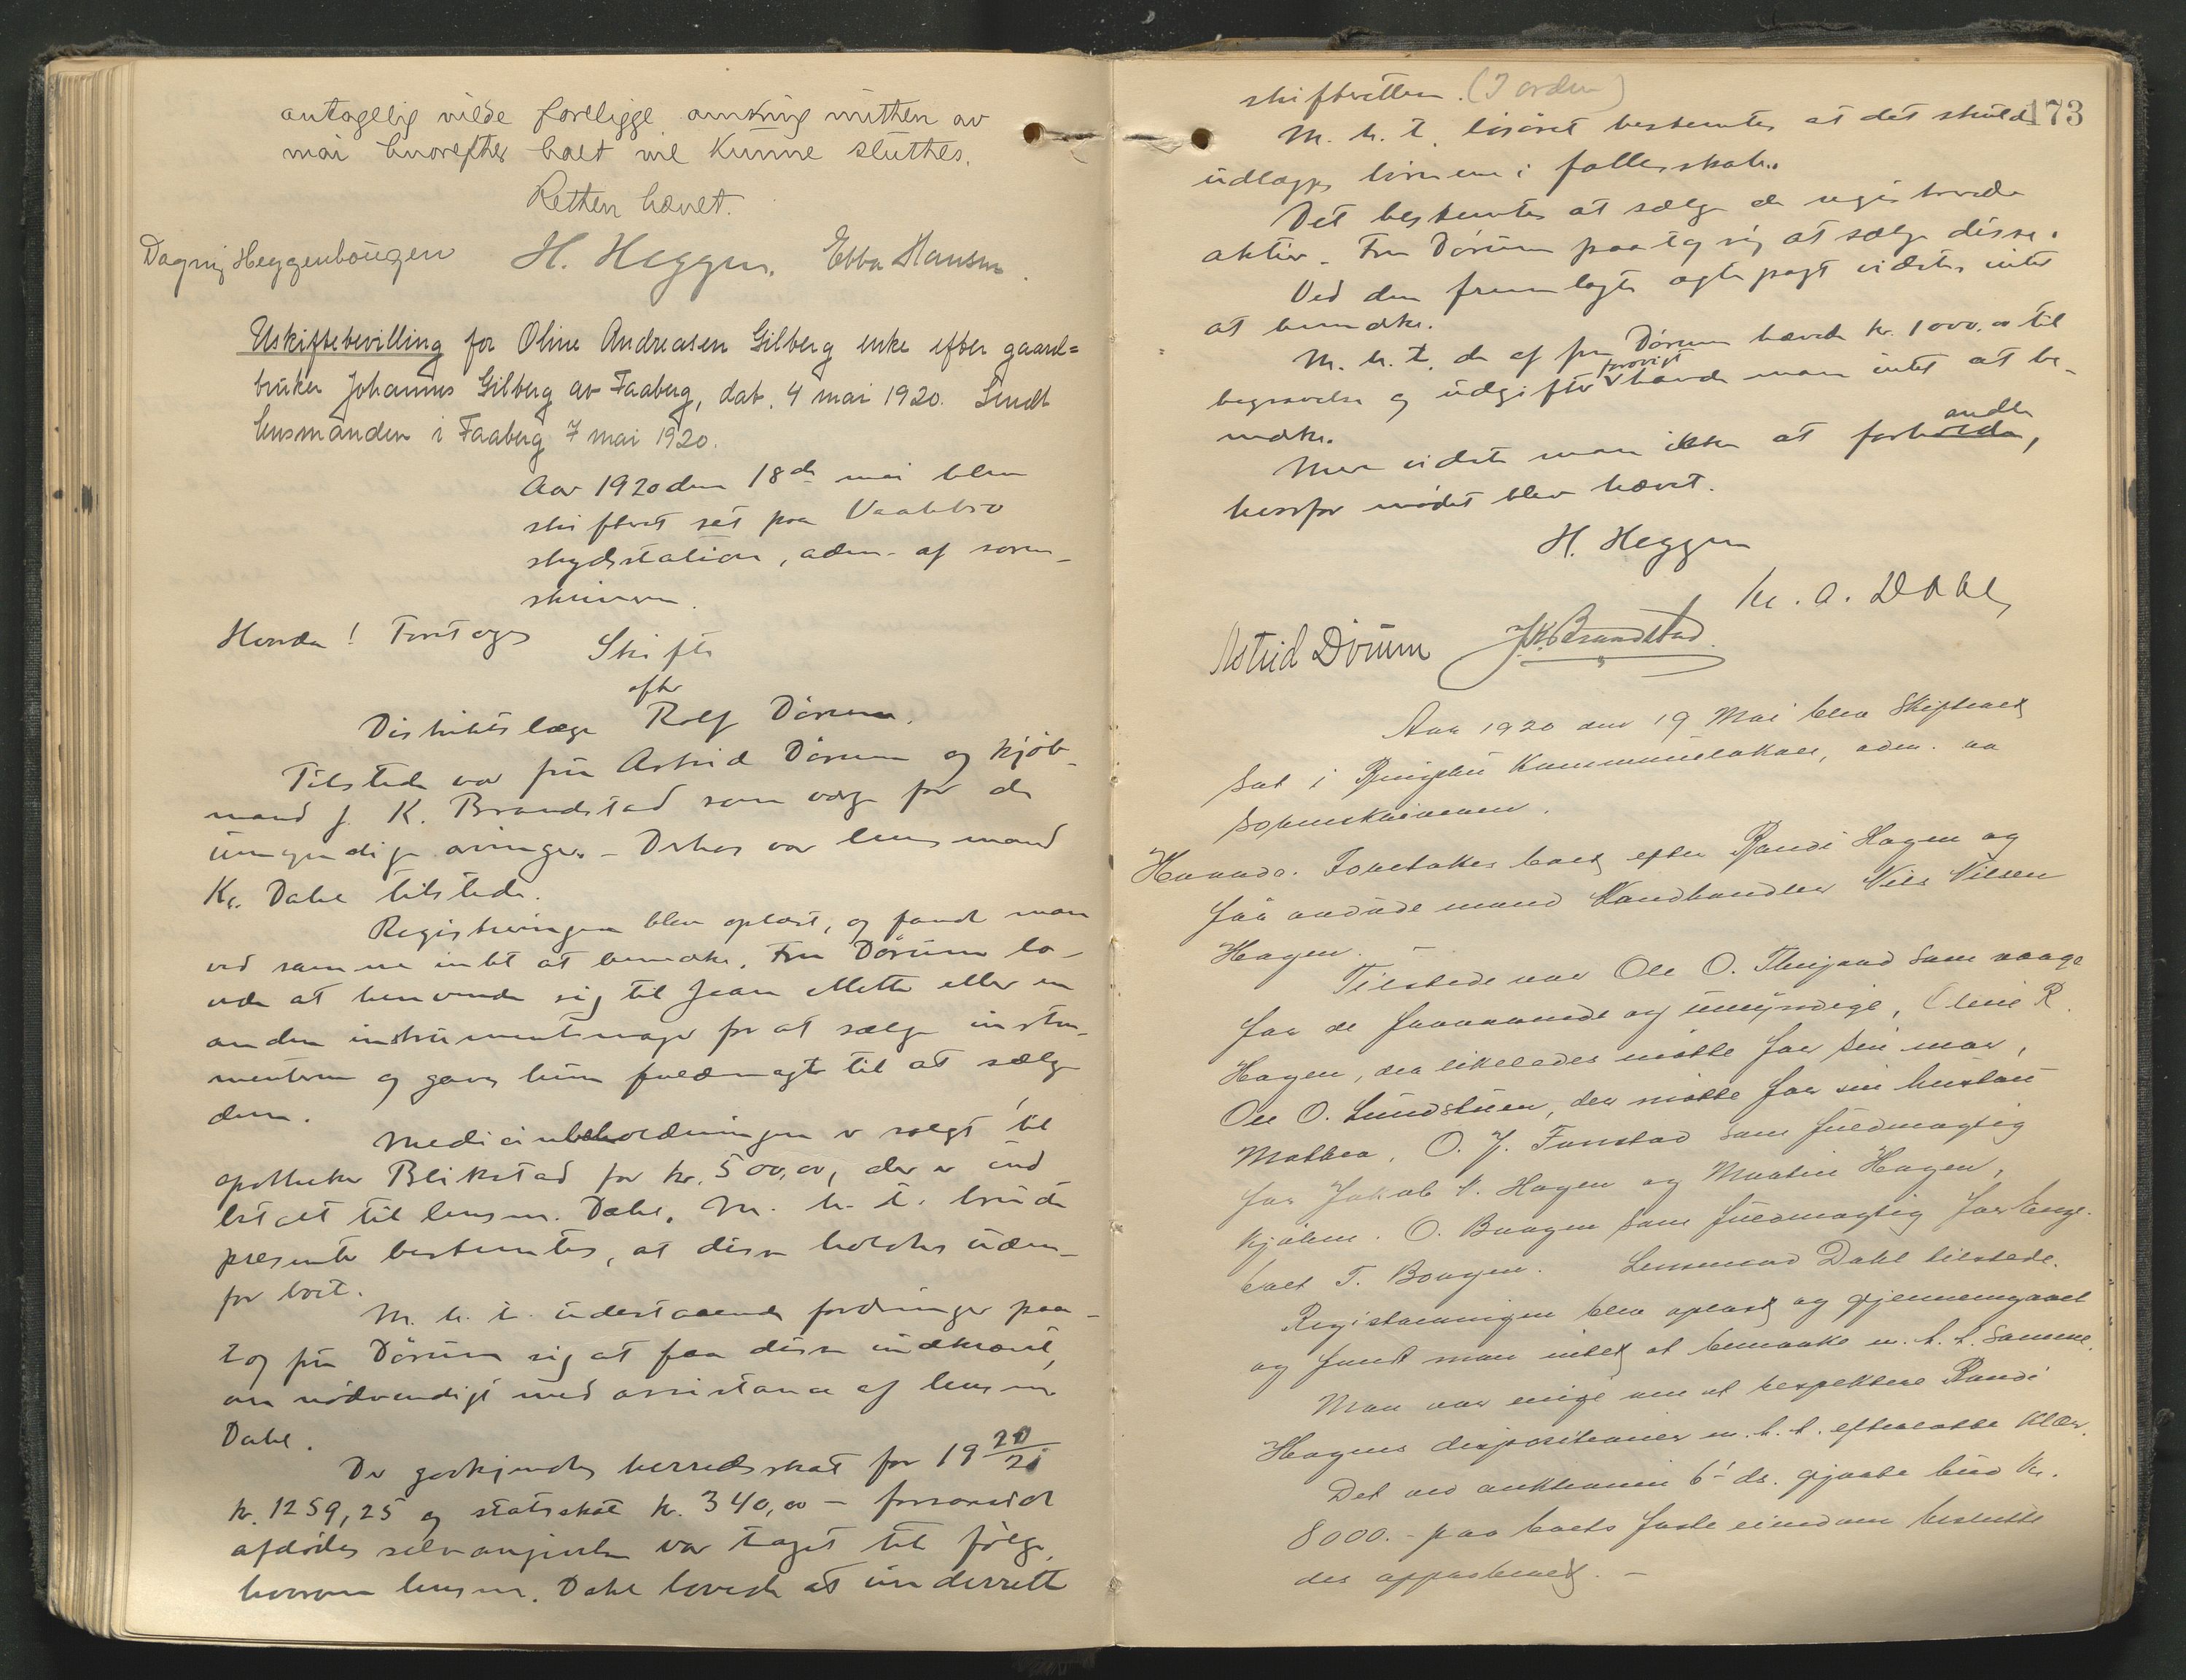 antagelig vilde foreligge omkring mitten av
mai hvorefter boet vil kunne sluttes.
Retten hævet.
Dagny Heggenhougen H. Heggen. Ebba Hansen.
Uskiftebevilling for Oline Andreasen Gilberg enke efter gaard=
bruker Johannes Gilberg av Faaberg, dat. 4 mai 1920. Sendt
lensmanden i Faaberg 7 mai 1920.
Aar 1920 den 18de mai blev
skifteret sat paa Vaalebro
skydsstation, adm. af soren-
skriveren.
Hvorda! Foretoges Skifte
efter
Distriktslæge Rolf Dørum.
Tilstede var fru Astrid Dørum og kjøb-
mand J. K. Brandstad som værge for de
umyndige arvinger. - Derhos var lensmand
Kr. Dahl tilstede.
Registreringen blev oplæst, og fandt man
ved samme intet at bemærke. Fru Dørum lo-
vede at henvende sig til Jean Mette eller en
anden instrumentmager for at sælge instru-
menterne og gaves hun fuldmagt til at sælge
dem.
Medicinbeholdningen er solgt til
apotheker Blikstad for kr. 500,00, der er ind
betalt til lensm. Dahl. M. h. t. brude
presenter bestemtes, at disse holdes uden-
for boet.
M. h. t. udestaaende fordringer paa-
tog fru Dørum sig at faa disse indkrævet,
om nødvendigt med assistance af lensm
Dahl.
Der godkjendtes herredsskat for 19 20/21
kr. 1259,25 og statsskat kr. 340,00 - forsaavidt
afdødes selvangivelse var taget til følge,
hvorom lensm. Dahl lovede at underrette
173
skifteretten. (I orden)
M. h. t. løsøret bestemtes at det skulde
udlægges børnene i fællesskab.
Det bestemtes at sælge de registrerede
aktier. Fru Dørum paatog sig at sælge disse.
Ved den fremlagte ægtepagt vidstes intet
at bemærke.
M. h. t. de af fru Dørum hævede kr. 1000.00 til
begravelse og udgifter havde man intet at be-
mærke.
Mere vidste man ikke at forhandle,
hvorfor mødet blev hævet.
H. Heggen
Kr. A. Dahl
Astrid Dørum J.K. Brandstad.
Aar 1920 den 19 Mai blev Skifteret
sat i Ringebu Kommunelokale, adm. av
Sorenskriveren.
Hvorda. Foretokes boet efter Randi Hagen og
før avdøde mand Landhandler Nils Nilsen
Hagen.
Tilstede var Ole O. som værge
for de fraværende og umyndige, Oline R.
Hagen, der likeledes møtte for sin mor,
Ole O. Lundstuen, der møtte for sin hustru
Mathea, O. J. Fonstad som fuldmægtig
for Jakob N. Hagen og Martin Hagen,
O. Baagen som fuldmægtig for Enge-
bret T. Bougen. Lensmand Dahl tilstede.
Registreringen blev oplæst og gjennemgaaet
og fandt man intet at bemærke m. h. t. samme.
Man var enige om at respektere Randi
Hagens dispositioner m. h. t. efterlatte klær.
Det ved auktionen 6' ds. gjorte bud kr.
8000.- paa boets faste eiendom besluttedes
des approberet. -